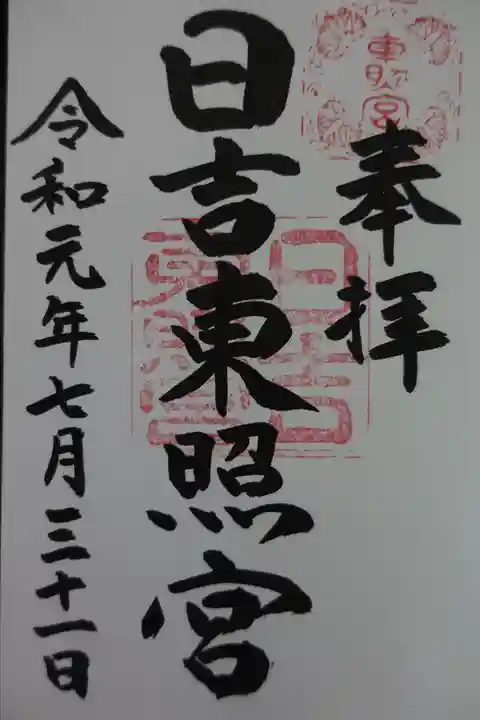 奉拝
東照宮
日吉東照宮
令和元年七月三十一日